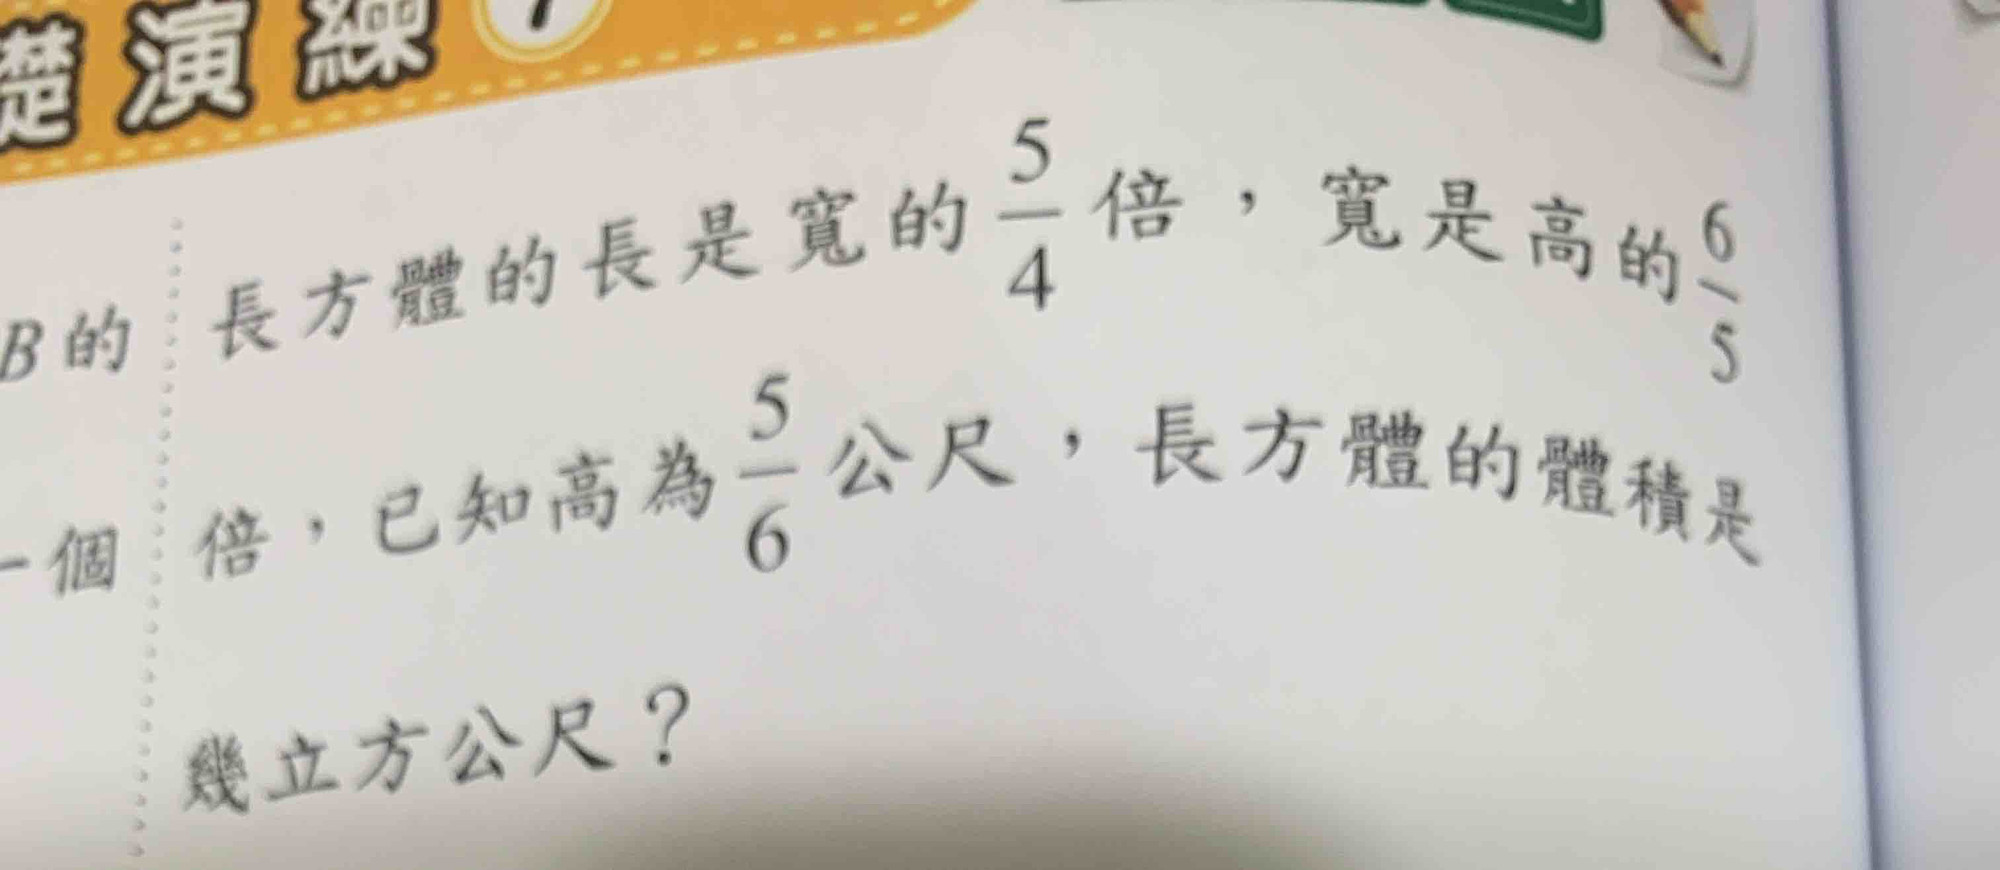 礎演練
長方體的長是寬的5/4倍，寬是高的6/5
B的
倍，已知高為5/6公尺，長方體的體積是
一個
幾立方公尺？